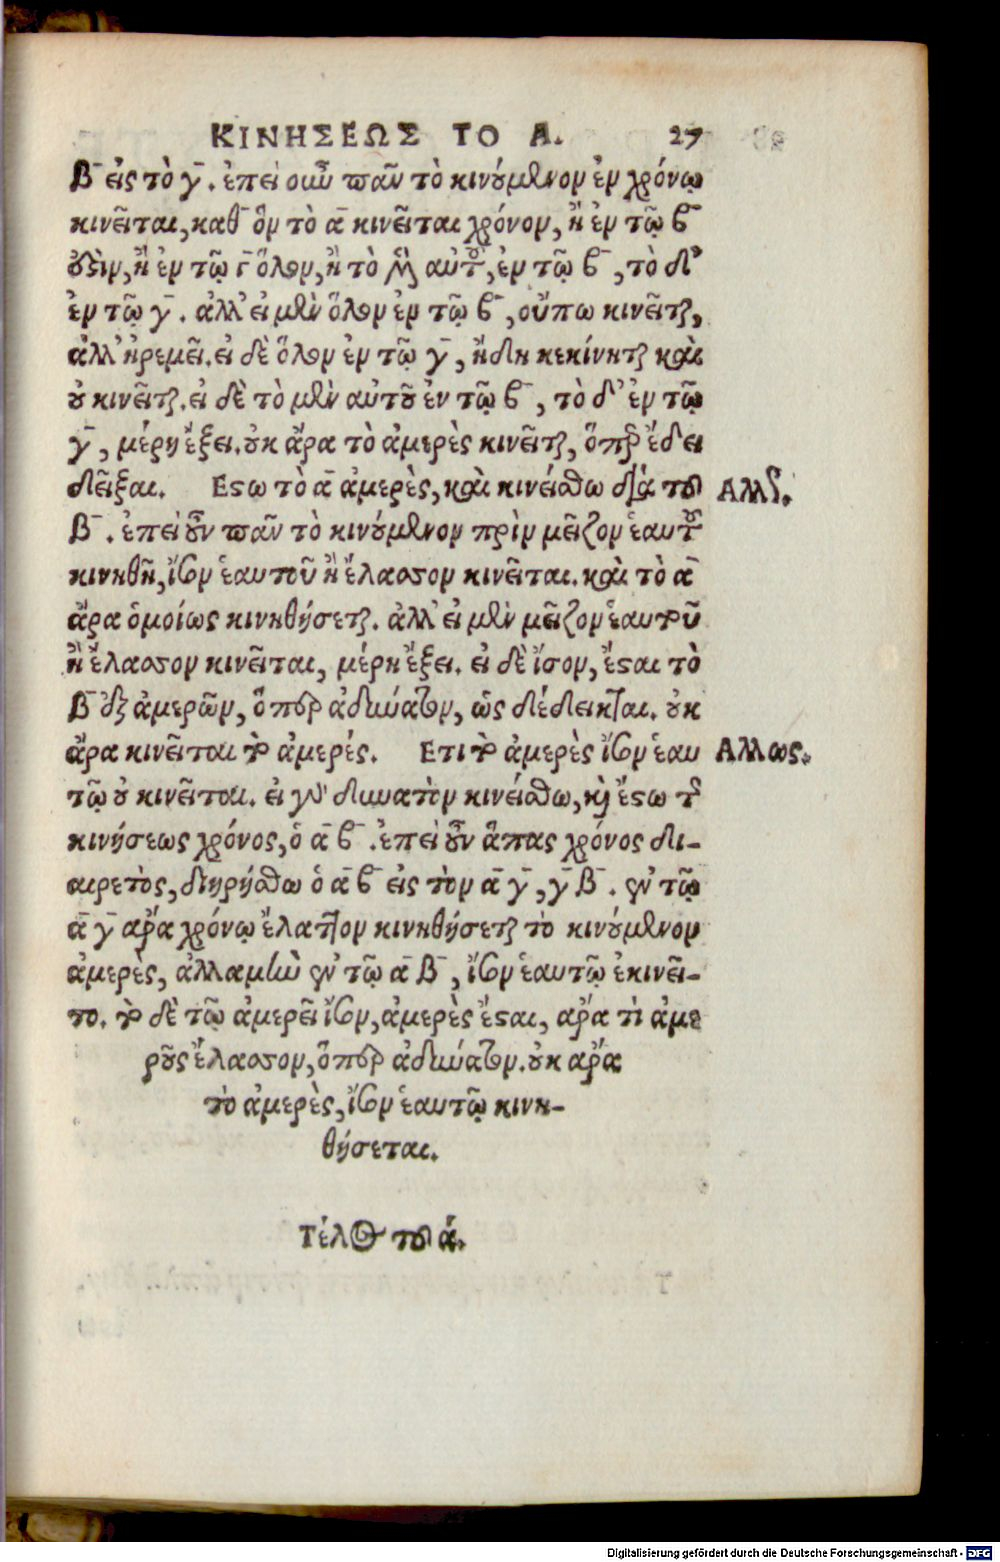 ΚΙΝΗΣΕΩΣ ΤΟ Α. 27
β̄ εἰς τὸ γ̄. ἐπεὶ οὖν πᾶν τὸ κινούμενον ἐν χρόνῳ
κινεῖται, καθ᾽ ὃν τὸ ᾱ κινεῖται χρόνον, ἢ ἐν τῷ β̄
ὅλον, ἢ τὸ μὲν αὐτοῦ, ἐν τῷ β̄, τὸ δ᾽
ἐν τῷ γ̄. ἀλλ᾽ εἰ μὲν ὅλον ἐν τῷ β̄, οὔπω κινεῖται,
ἀλλ᾽ ἠρεμεῖ. εἰ δὲ ὅλον ἐν τῷ γ̄, ἤδη κεκίνηται καὶ
οὐ κινεῖται. εἰ δὲ τὸ μὲν αὐτοῦ ἐν τῷ β̄, τὸ δ᾽ ἐν τῷ
γ̄, μέρη ἕξει. οὐκ ἄρα τὸ ἀμερὲς κινεῖται, ὅπερ ἔδει
δεῖξαι. Εστω τὸ ᾱ ἀμερὲς, καὶ κινείσθω διὰ τοῦ Αλλως.
β̄. ἐπεὶ οὖν πᾶν τὸ κινούμενον πρὶν μεῖζον ἑαυτοῦ
κινηθῆ, ἴσον ἑαυτοῦ ἢ ἔλασσον κινεῖται. καὶ τὸ ᾱ
ἄρα ὁμοίως κινηθήσεται. ἀλλ᾽ εἰ μὲν μεῖζον ἑαυτοῦ
ἢ ἔλασσον κινεῖται, μέρη ἕξει. εἰ δὲ ἴσον, ἔσται τὸ
β̄ ἐξ ἀμερῶν, ὅπερ ἀδύνατον, ὡς δέδεικται. οὐκ
ἄρα κινεῖται τὸ ἀμερές. Ετι τὸ ἀμερὲς ἴσον ἑαυ Αλλως.
τῷ οὐ κινεῖται. εἰ γὰρ δυνατὸν κινείσθω, καὶ ἔστω τῆς
κινήσεως χρόνος, ὁ ᾱ β̄. ἐπεὶ οὖν ἅπας χρόνος δι-
αιρετὸς, διηρήσθω ὁ ᾱ β̄ εἰς τὸν ᾱ γ̄, γ̄ β̄. ἐν τῷ
ᾱ γ̄ ἄρα χρόνῳ ἔλαττον κινηθήσεται τὸ κινούμενον
ἀμερὲς, ἀλλαμὴν ἐν τῷ ᾱ β̄, ἴσον ἑαυτῷ ἐκινεῖ-
το. τὸ δὲ τῷ ἀμερεῖ ἴσον, ἀμερὲς ἔσται, ἄρα τὶ ἀμε
ροῦς ἔλασσον, ὅπερ ἀδύνατον. οὐκ ἄρα
τὸ ἀμερὲς, ἴσον ἑαυτῷ κινη-
θήσεται.
Τέλος τοῦ ά.
Digitalisierung gefördert durch die Deutsche Forschungsgemeinschaft - DFG